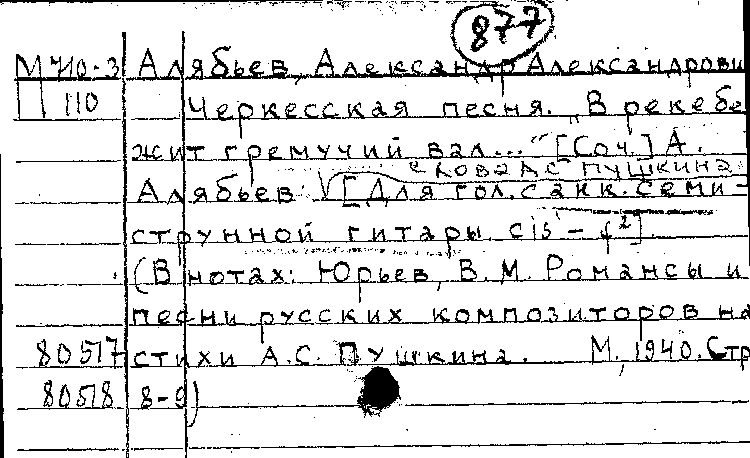 877
М 710-3 Алябьев, Александр Александрови
П 110 Черкесская песня. „В реке бе
жит гремучий вал..." [Соч.] А.
слова А С Пушкина
Алябьев. [Для гол. с акк. семи-
струнной гитары cis - f²].
(В нотах: Юрьев, В.М. Романсы и
песни русских композиторов на
80517 стихи А.С. Пушкина. М., 1940. Стр
80518 8-9)